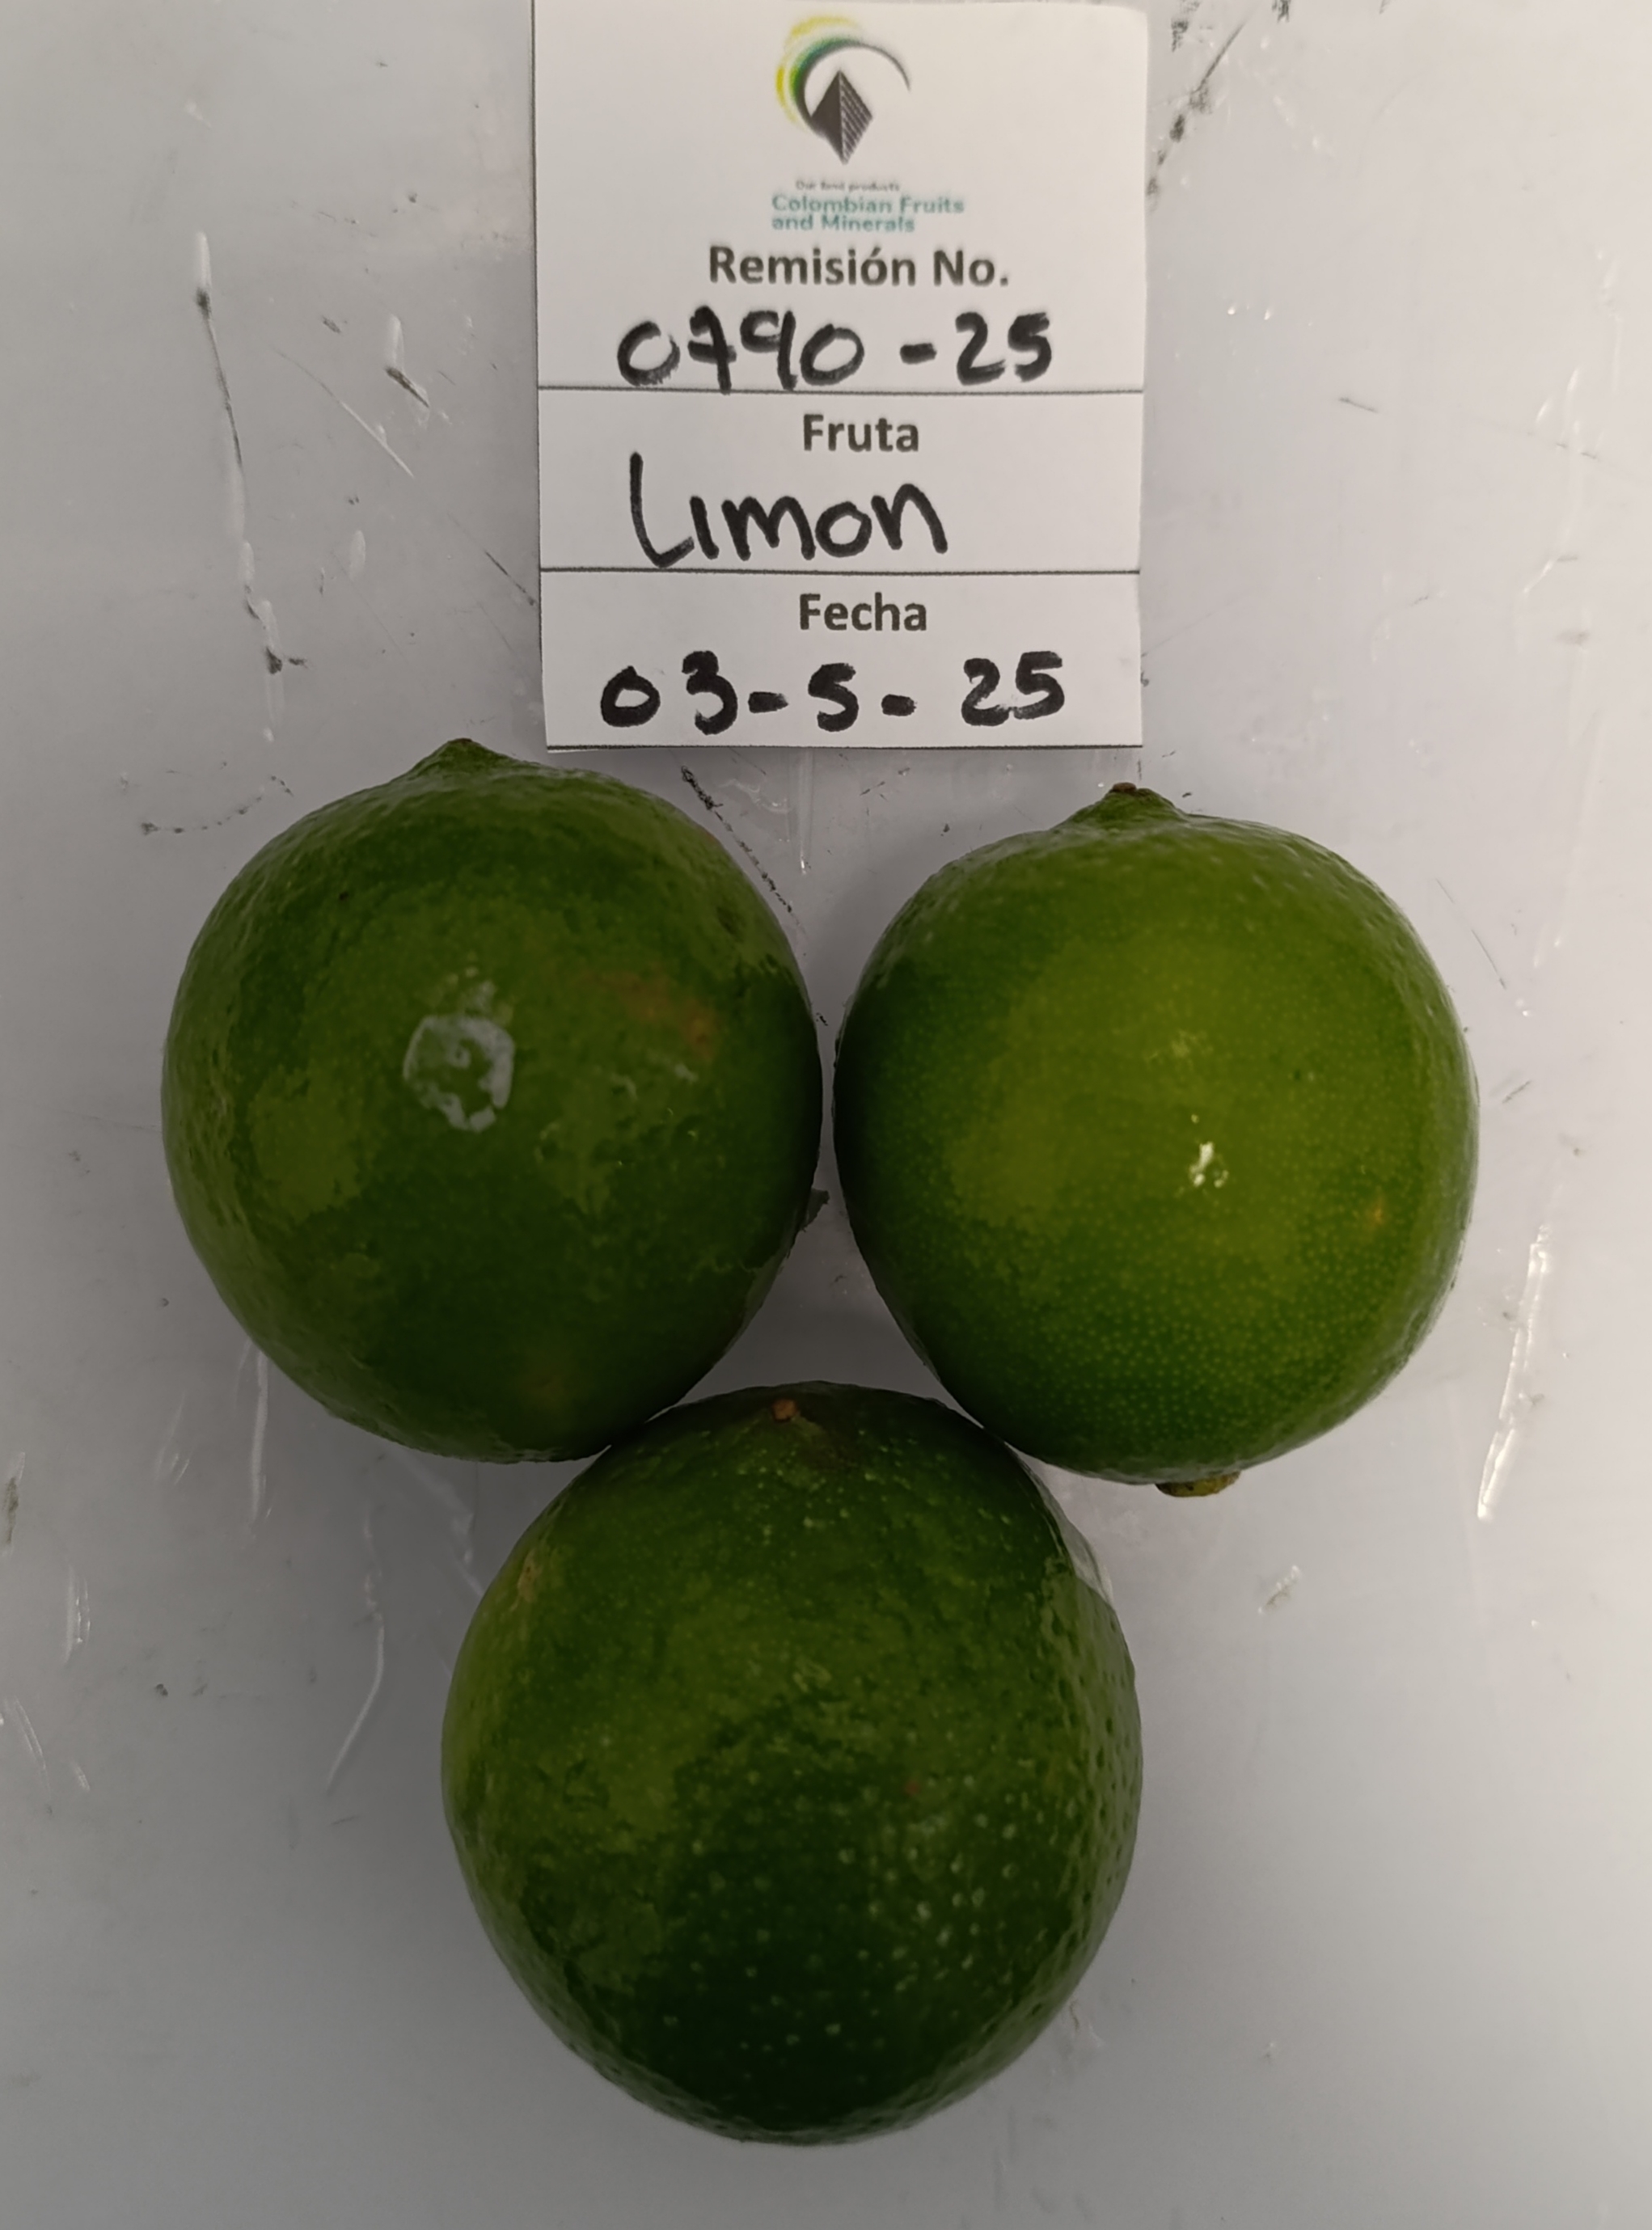 Our best products
Colombian Fruits
and Minerals
Remisión No.
0790-25
Fruta
Limon
Fecha
03-5-25